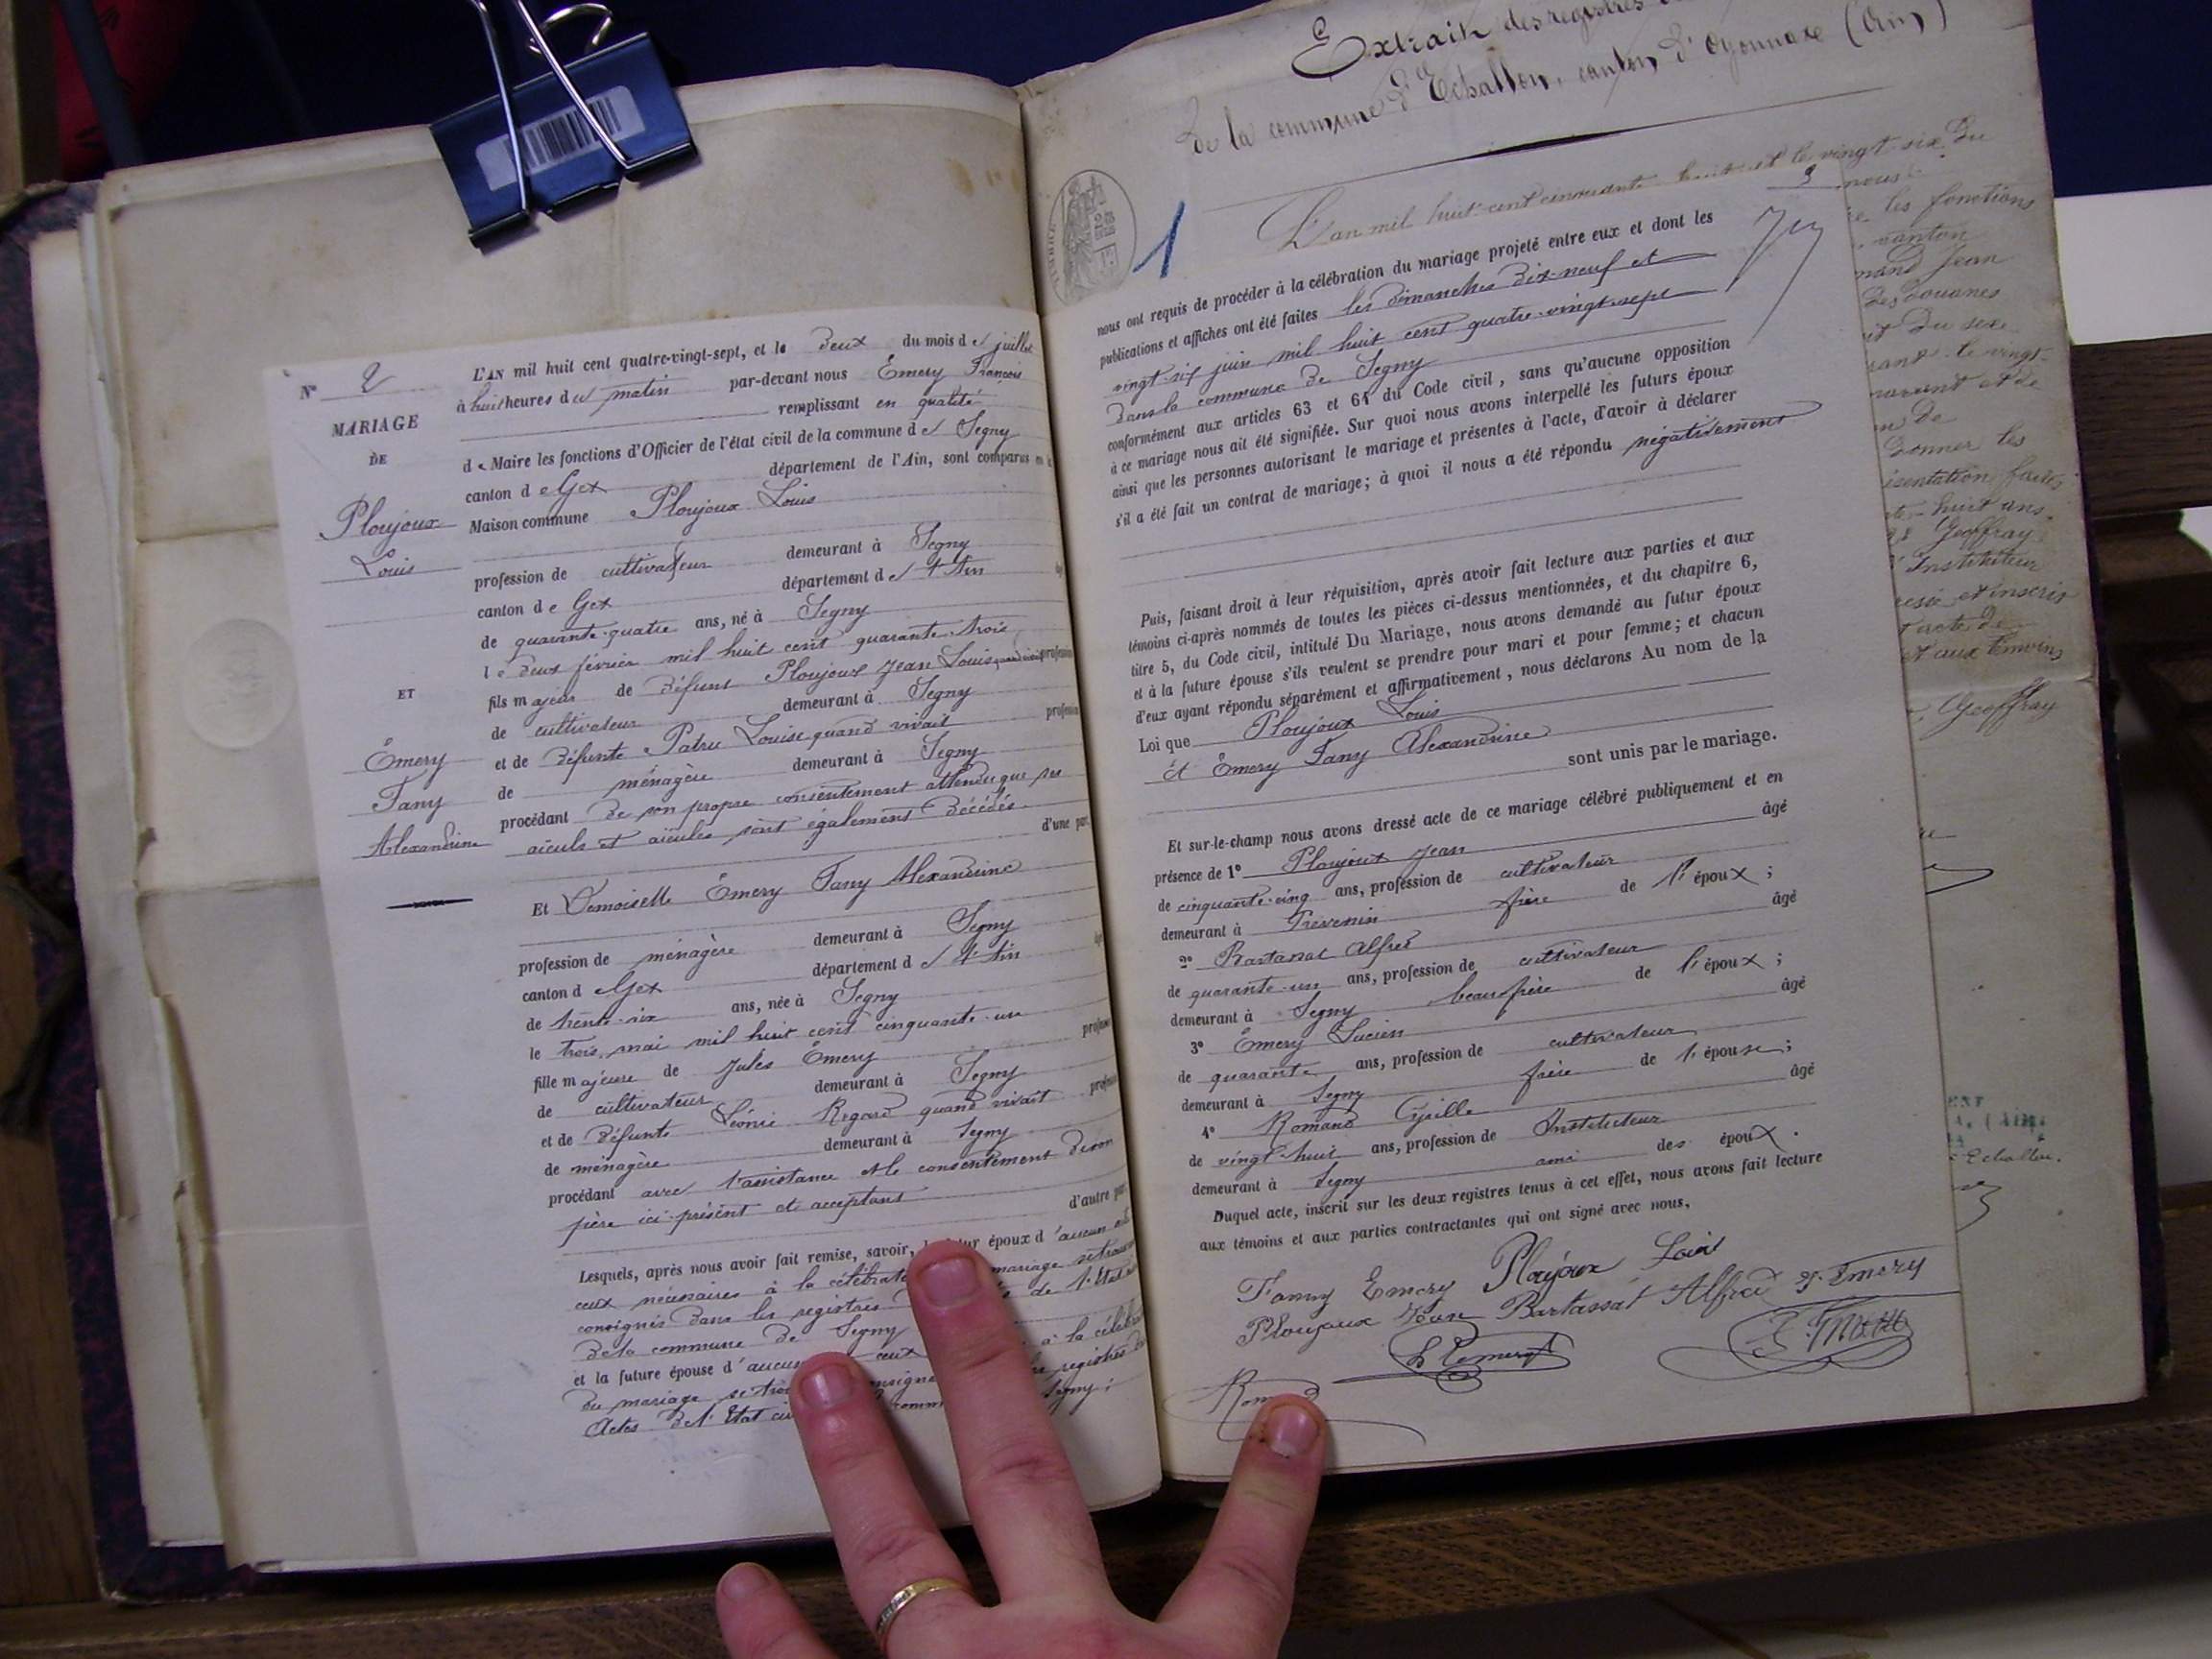 N° 2
MARIAGE
DE
Ploujoux
Louis
ET
Émery
Fany
Alexandrine
L'AN mil huit cent quatre-vingt-sept, et le deux du mois de juillet
à huit heures du matin par-devant nous Émery François
remplissant en qualité
de Maire les fonctions d'Officier de l'état civil de la commune de Segny
canton de Gex département de l'Ain, sont comparus en la
Maison commune Ploujoux Louis
profession de cultivateur demeurant à Segny
canton de Gex département de l'Ain
de quarante-quatre ans, né à Segny
le deux février mil huit cent quarante-trois
fils majeur de défunt Ploujoux Jean Louis quand vivait profession
de cultivateur demeurant à Segny
et de défunte Patru Louise quand vivait profession
de ménagère demeurant à Segny
procédant de son propre consentement attendu que ses
aïeuls et aïeules sont également décédés.
d'une part
Et Demoiselle Émery Fany Alexandrine
profession de ménagère demeurant à Segny
canton de Gex département de l'Ain
de trente-six ans, née à Segny
le trois mai mil huit cent cinquante-un
fille majeure de Jules Émery profession
de cultivateur demeurant à Segny
et de défunte Léonie Regard quand vivait profession
de ménagère demeurant à Segny
procédant avec l'assistance et le consentement de son
père ici présent et acceptant
d'autre part
Lesquels, après nous avoir fait remise, savoir, le futur époux d'aucun
ceux nécessaires à la célébrat mariage se trouvant
consignés dans les registres de l'État
de la commune de Segny
et la future épouse d'aucun ceux à la célébra
du mariage se trou consigné registres
Actes de l'État civ comm Segny;
Extrait des registres
de la commune d'Echallon, canton d'Oyonnax (Ain)
L'an mil huit cent cinquante-huit et le vingt-six du
TIMBRE
1
nous ont requis de procéder à la célébration du mariage projeté entre eux et dont les
publications et affiches ont été faites les dimanches dix-neuf et
vingt-six juin mil huit cent quatre-vingt-sept
dans la commune de Segny
conformément aux articles 63 et 64 du Code civil, sans qu'aucune opposition
à ce mariage nous ait été signifiée. Sur quoi nous avons interpellé les futurs époux
ainsi que les personnes autorisant le mariage et présentes à l'acte, d'avoir à déclarer
s'il a été fait un contrat de mariage; à quoi il nous a été répondu négativement
Puis, faisant droit à leur réquisition, après avoir fait lecture aux parties et aux
témoins ci-après nommés de toutes les pièces ci-dessus mentionnées, et du chapitre 6,
titre 5, du Code civil, intitulé Du Mariage, nous avons demandé au futur époux
et à la future épouse s'ils veulent se prendre pour mari et pour femme; et chacun
d'eux ayant répondu séparément et affirmativement, nous déclarons Au nom de la
Loi que Ploujoux Louis
et Émery Fany Alexandrine
sont unis par le mariage.
Et sur-le-champ nous avons dressé acte de ce mariage célébré publiquement et en
présence de 1° Ploujoux Jean âgé
de cinquante-cinq ans, profession de cultivateur
demeurant à Prévessin frère de l'époux;
2° Bartassat Alfred âgé
de quarante-un ans, profession de cultivateur
demeurant à Segny beau-frère de l'époux;
3° Émery Lucien âgé
de quarante ans, profession de cultivateur
demeurant à Segny frère de l'épouse;
4° Romand Cyrille âgé
de vingt-huit ans, profession de Instituteur
demeurant à Segny ami des époux.
Duquel acte, inscrit sur les deux registres tenus à cet effet, nous avons fait lecture
aux témoins et aux parties contractantes qui ont signé avec nous,
Fanny Emery Ploujoux Louis
Ploujoux Jean Bartassat Alfred J. Emery
L. Emery
Romand
nous
les fonctions
canton
mand Jean
des douanes
du sexe
le vingt-
et de
de
donner les
présentation faites
huit ans
Geoffray
Instituteur
et inscrit
acte de
et aux témoins
Geoffray
Echallon.